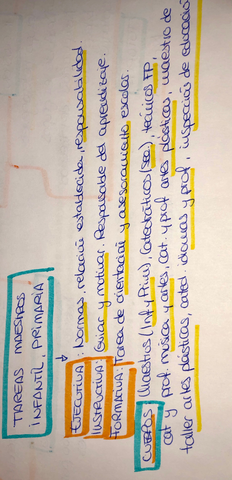 TAREAS MAESTROS
INFANTIL, PRIMARIA
EJECUTIVA: Normas, relación establecida, responsabilidad.
INSTRUCTIVA: Guiar y motivar, Responsable del aprendizaje.
FORMATIVA: Tarea de orientación y asesoramiento escolar.
CUERPOS Maestros (Inf y Prim), Catedráticos (sec), técnicos FP,
cat y prof. música y artes, cat y prof artes plásticas, maestro de
taller artes plásticas, cated. idiomas y prof, inspección de educación